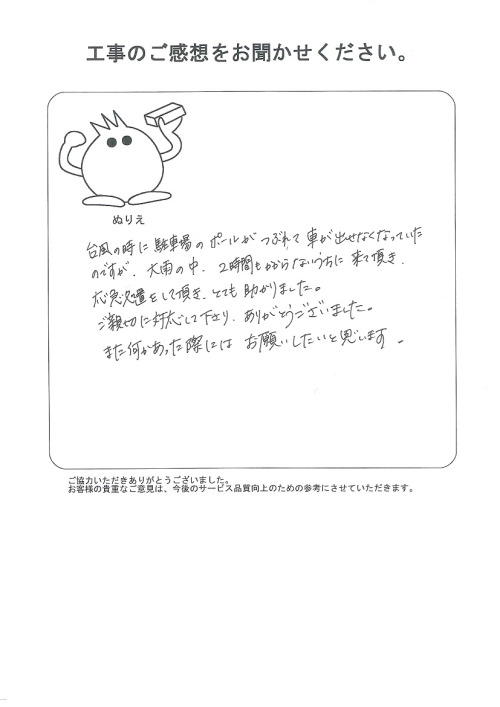 工事のご感想をお聞かせください。
ぬりえ
台風の時に駐車場のポールがつぶれて車が出せなくなっていた
のですが、大雨の中、2時間もかからないうちに来て頂き、
応急処置をして頂き、とても助かりました。
ご親切に対応して下さり、ありがとうございました。
また何かあった際には お願いしたいと思います。
ご協力いただきありがとうございました。
お客様の貴重なご意見は、今後のサービス品質向上のための参考にさせていただきます。